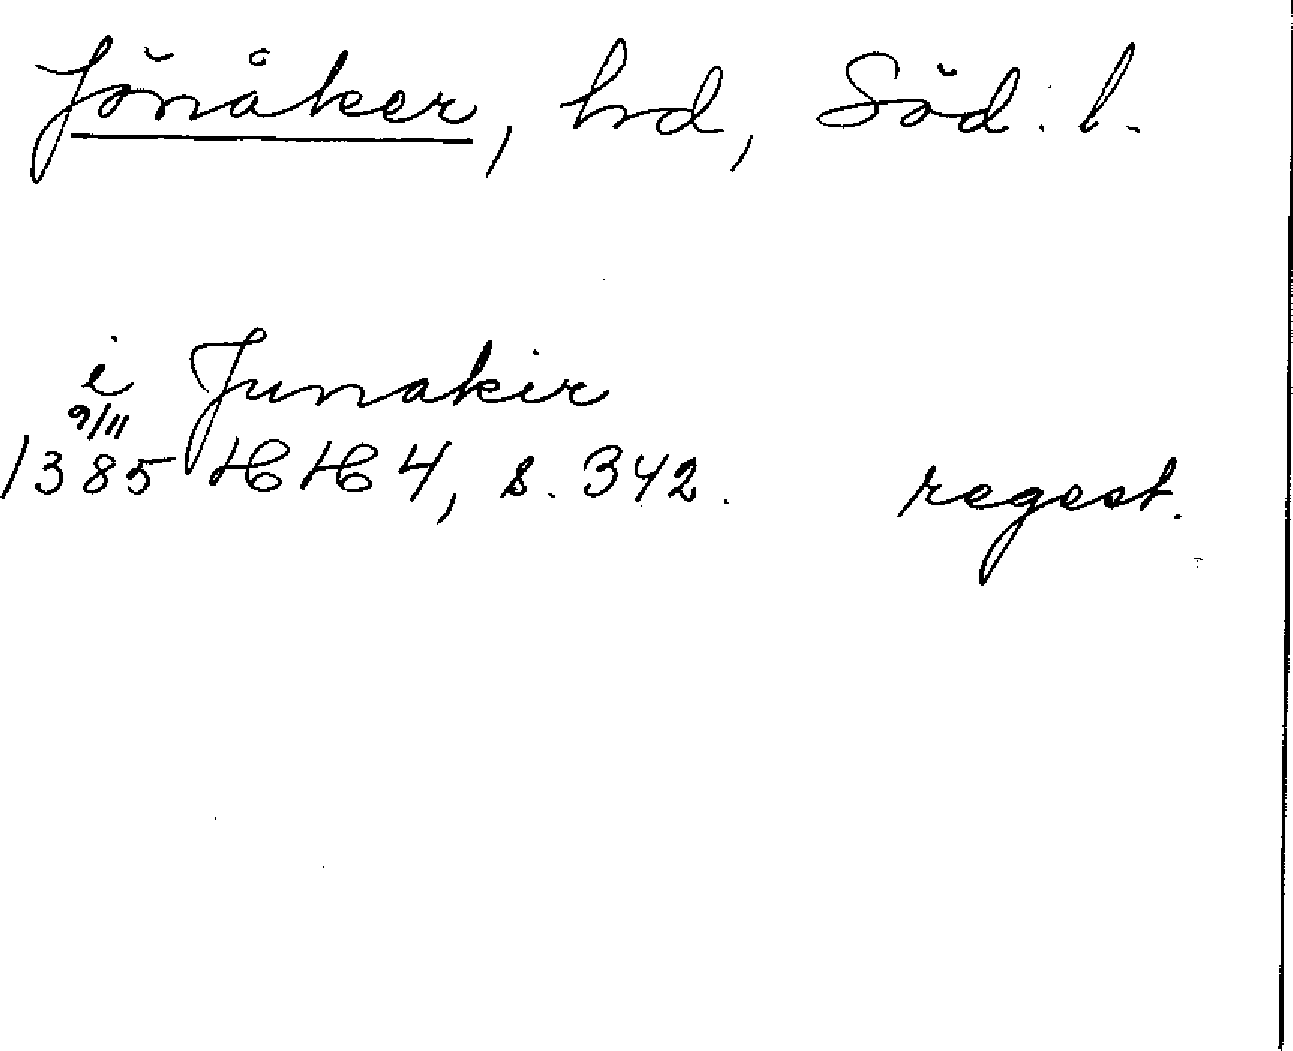 Jönåker, hd, Söd. l.
i Junakir
9/11
1385 HH 4, s. 342. regest.